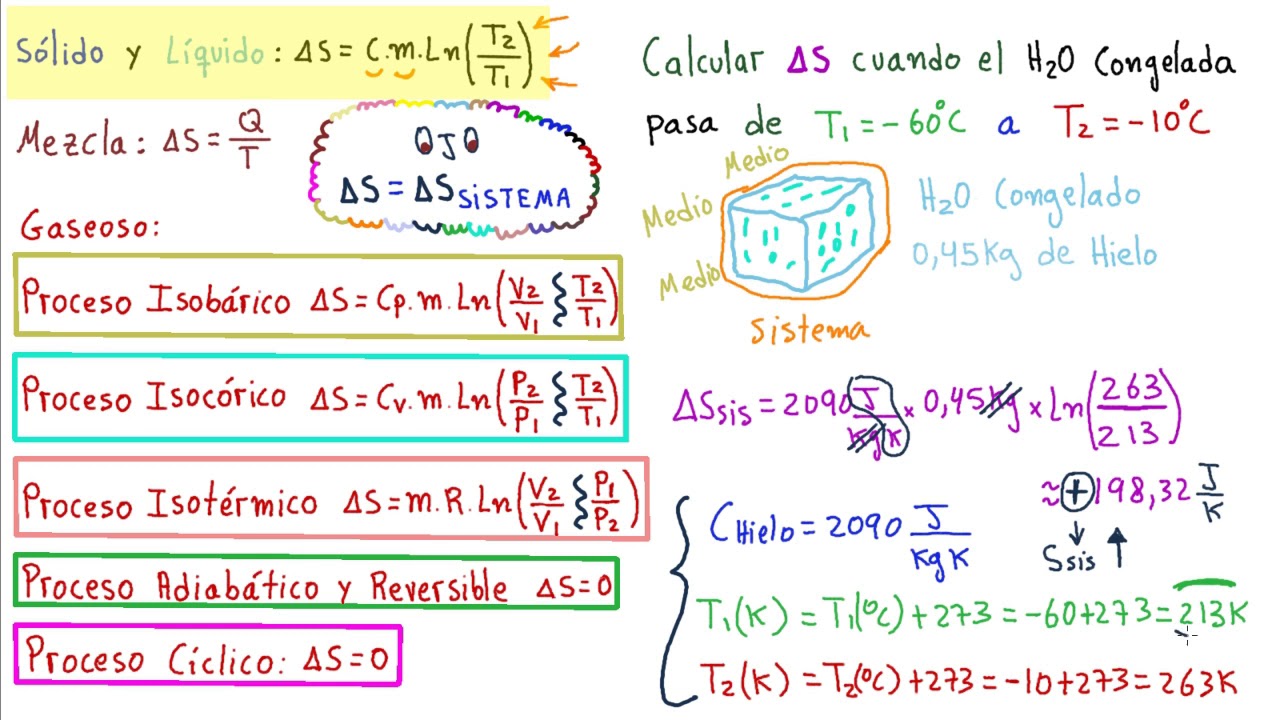 Sólido y Líquido: ΔS = C.m.Ln(T₂/T₁)
Mezcla: ΔS = Q/T
OJO
ΔS = ΔS SiSTEMA
Gaseoso:
Proceso Isobárico ΔS = Cp.m.Ln(V₂/V₁ ⸾ T₂/T₁)
Proceso Isocórico ΔS = Cv.m.Ln(P₂/P₁ ⸾ T₂/T₁)
Proceso Isotérmico ΔS = m.R.Ln(V₂/V₁ ⸾ P₁/P₂)
Proceso Adiabático y Reversible ΔS=0
Proceso Cíclico: ΔS=0
Calcular ΔS cuando el H₂O Congelada
pasa de T₁ = -60°C a T₂ = -10°C
Medio
Medio
Medio
H₂O Congelado
0,45Kg de Hielo
Sistema
ΔSsis = 2090 J/kgK × 0,45kg × Ln(263/213)
≈ +198,32 J/K
Ssis ↑
CHielo = 2090 J/KgK
T₁(K) = T₁(°C) + 273 = -60+273 = 213K
T₂(K) = T₂(°C) + 273 = -10+273 = 263K